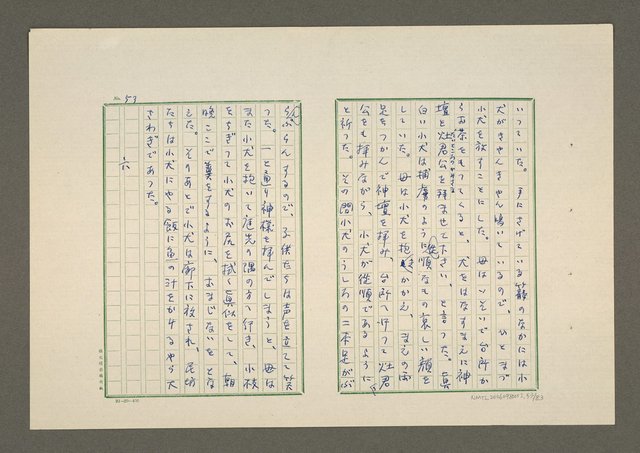 いつていた。 手にさげている籠のなかには小
犬がきやんきやん鳴いているので、 ひとまづ
小犬を放すことにした。 母はいそいで台所か
らお茶をもつてくると、 犬をはなすまえに神
壇と灶君公を拝ませて下さい、 と言つた。 真
白い小犬は捕虜のように従順なもの哀しい顔を
していた。 母は小犬を抱きかかえ、 まえの両
足をつかんで神壇を拝み、 台所へ行つて灶君
公をも拝みながら、 小犬が従順であるように
と祈つた。 その間小犬のうしろの二本足がぶ
No. 57
らんぶらんするので、 子供たちは声を立てて笑
つた。 一と通り神様を拝んでしまうと、 母は
また小犬を抱いて庭先の隅の方へ行き、 小枝
をちぎつて小犬のお尻を拭く真似をして、 朝
晩ここで糞をするように、 おまじないをとな
えた。 そのあとで小犬は廊下に放され、
たちは小犬にやる飯に魚の汁をかけるやら大
さわぎであつた。
六
NMTL